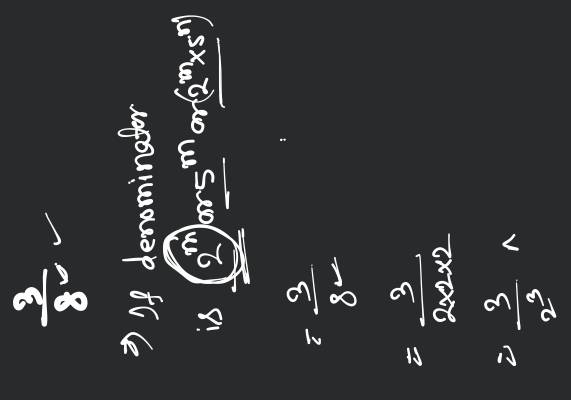 3/8 ✓ ✓
⇒ If denominator
is 2^m or 5^m or (2^m × 5^n)
= 3/8 ✓
= 3/2×2×2
= 3/2^3